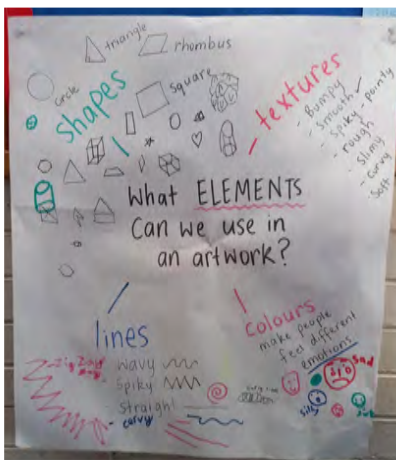 triangle
rhombus
circle
square
shapes
textures
- Bumpy
- smooth
- spiky - pointy
- rough
- slimy
- curvy
- soft
What ELEMENTS
Can we use in
an artwork?
lines
- zig zag
- wavy
- spiky
- straight
- curvy
colours
make people
feel different
emotions
sad
silly